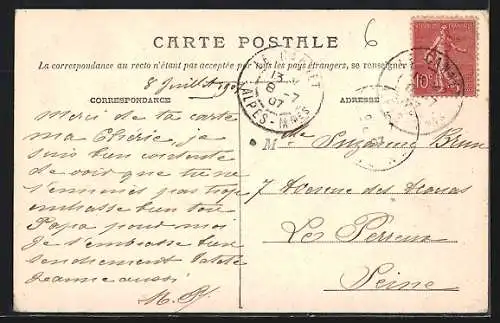 6
CARTE POSTALE
La correspondance au recto n'étant pas acceptée par tous les pays étrangers, se renseigner
8 Juillet 1907
CORRESPONDANCE
ADRESSE
LE CANNET
13
8 -7
07
ALPES-MMES
10
Merci de ta carte
ma Cherie, je
suis bien contente
de voir que tu ne
t'ennuies pas trop
embrasse bien ton
Papa pour moi
Je t'embrasse bien
tendrement
Jeanne aussi
M.
Mlle Suzanne Brun
7 Avenue des
Les Perreux
Seine